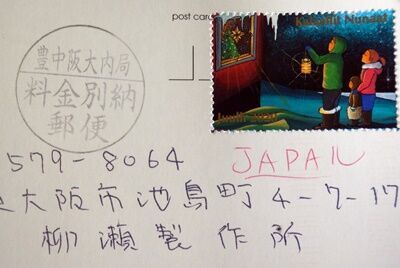 post card
Kalaallit Nunaat
豊中阪大内局
料金別納
郵便
Juulli 2020
579-8064
JAPAN
大阪市池島町4-7-17
柳瀬製作所